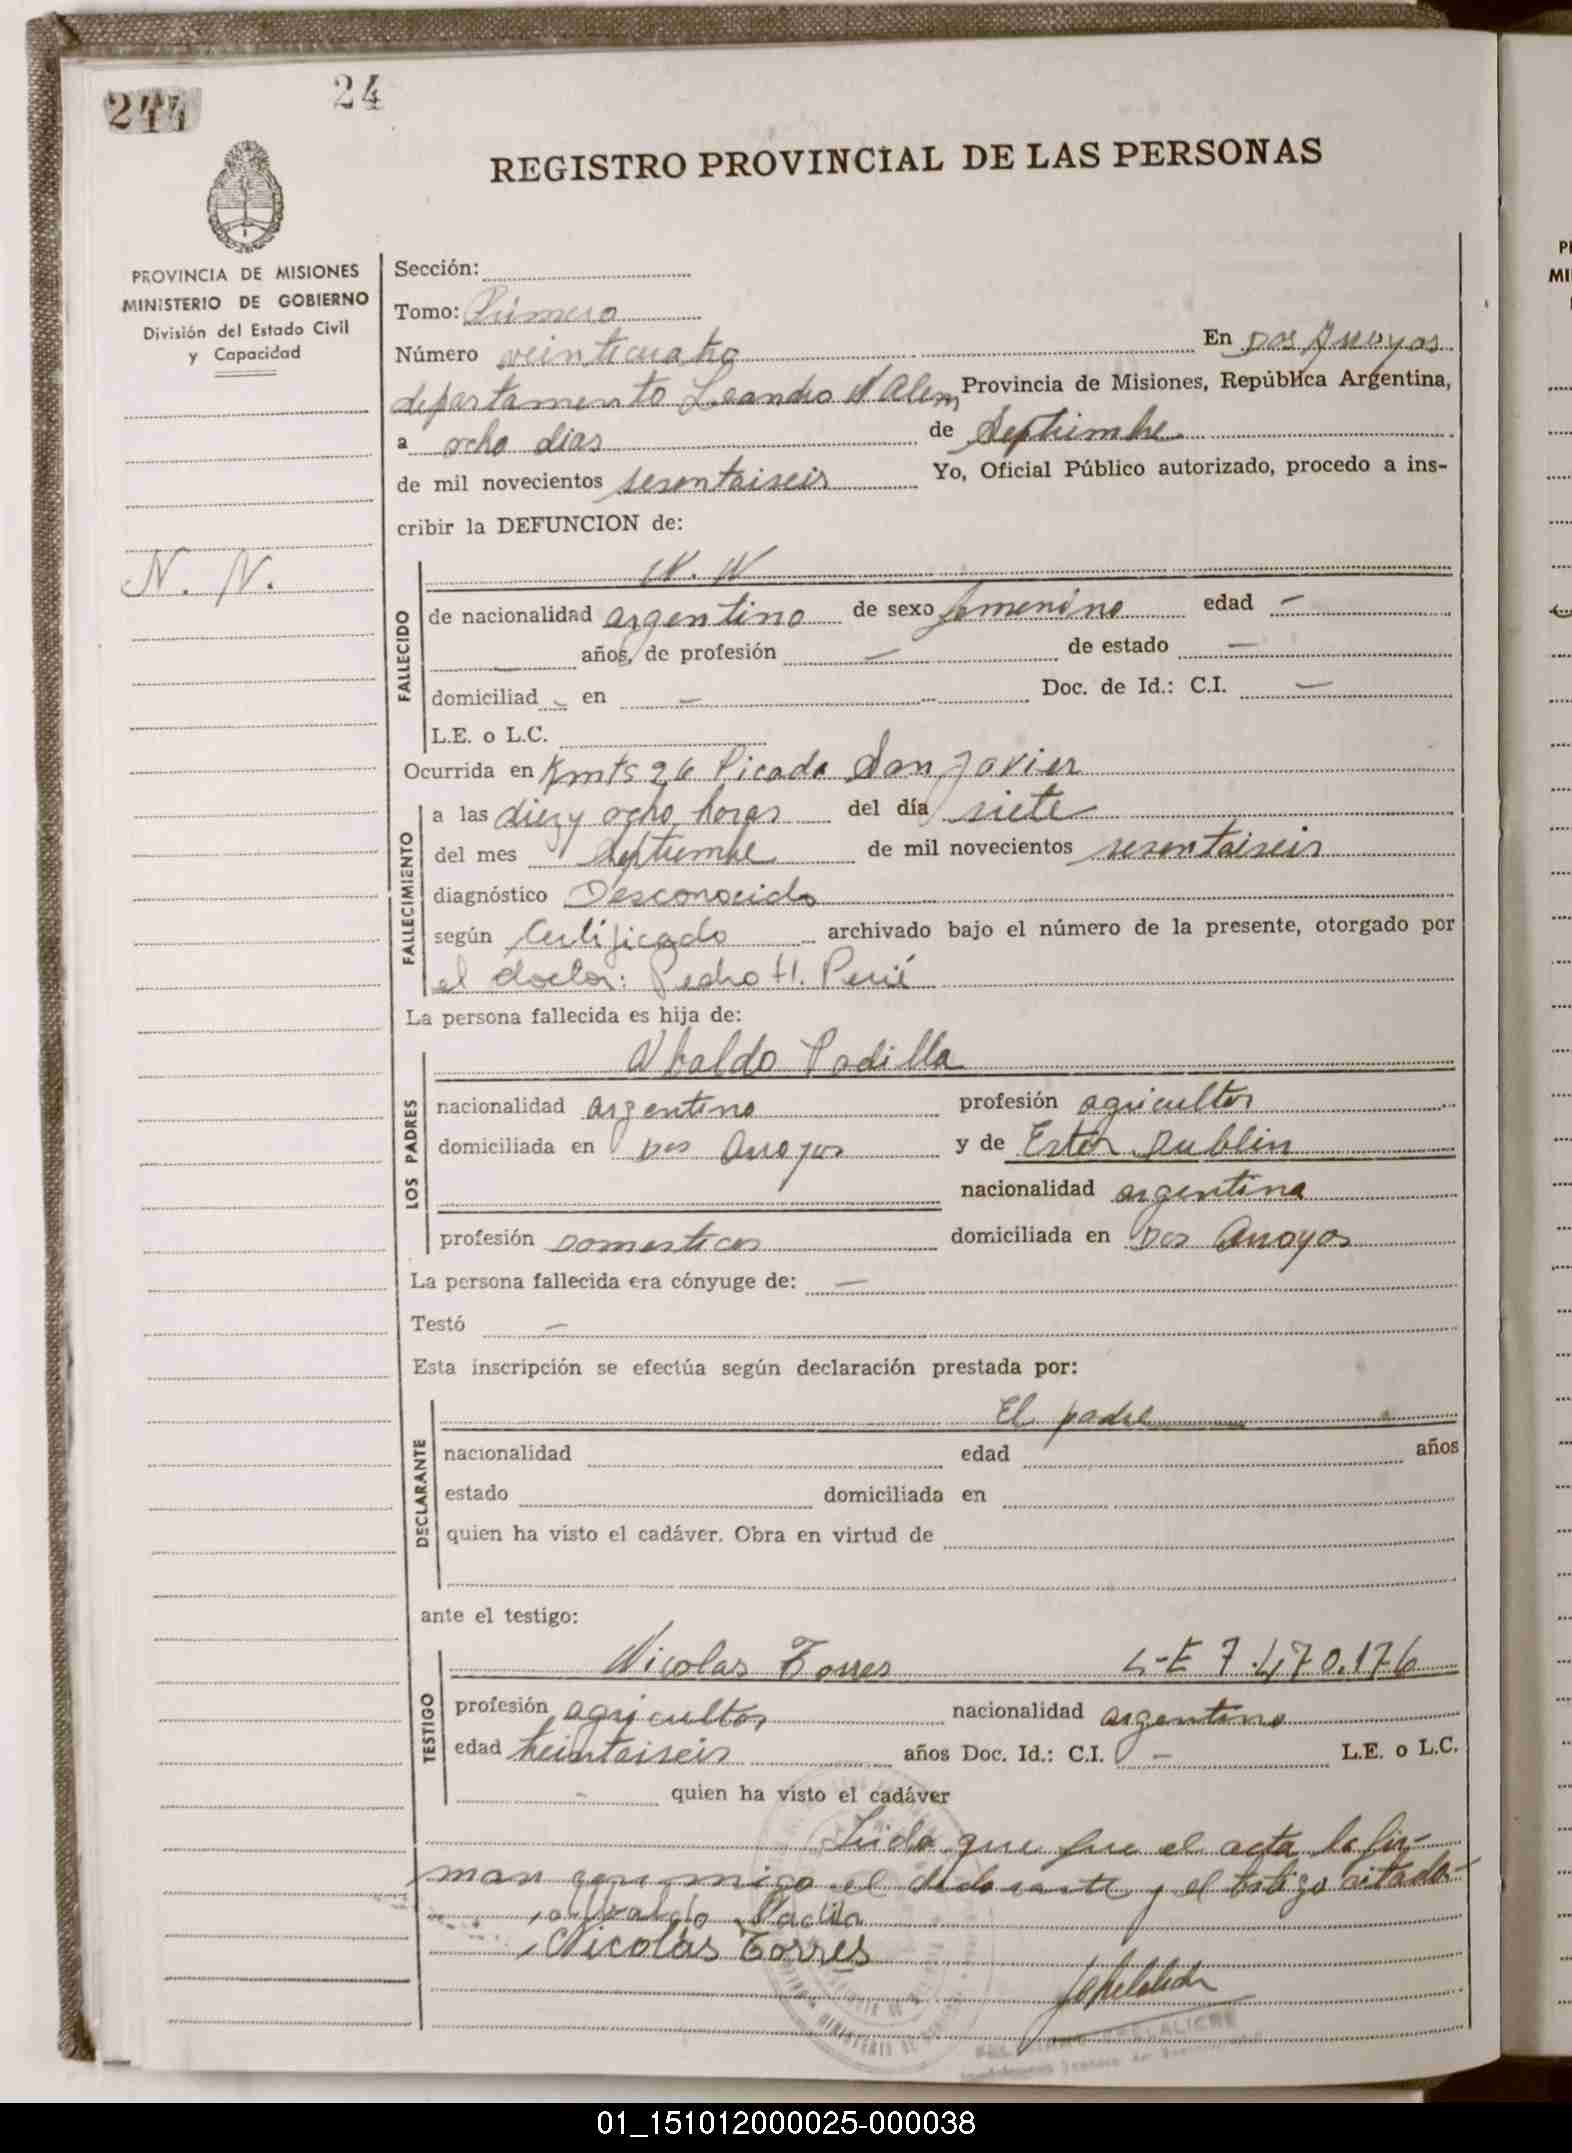 244
24
REGISTRO PROVINCIAL DE LAS PERSONAS
PROVINCIA DE MISIONES
MINISTERIO DE GOBIERNO
División del Estado Civil
y Capacidad
N. N.
Sección:
Tomo: Primero
Número veinticuatro En Dos Arroyos
departamento Leandro N Alem Provincia de Misiones, República Argentina,
a ocho dias de Septiembre
de mil novecientos sesentaiseis Yo, Oficial Público autorizado, procedo a ins-
cribir la DEFUNCION de:
N. N
FALLECIDO
de nacionalidad argentino de sexo femenino edad -
años, de profesión - de estado -
domiciliad - en - Doc. de Id.: C.I. -
L.E. o L.C.
Ocurrida en Kmts 26 Picada San Javier
FALLECIMIENTO
a las diez y ocho horas del día siete
del mes Septiembre de mil novecientos sesentaiseis
diagnóstico Desconocido
según Certificado archivado bajo el número de la presente, otorgado por
el doctor: Pedro H.
La persona fallecida es hija de:
LOS PADRES
Ubaldo Padilla
nacionalidad argentino profesión agricultor
domiciliada en Dos Arroyos y de Ester Dublin
nacionalidad argentina
profesión domesticas domiciliada en Dos Arroyos
La persona fallecida era cónyuge de: -
Testó -
Esta inscripción se efectúa según declaración prestada por:
DECLARANTE
El padre
nacionalidad edad años
estado domiciliada en
quien ha visto el cadáver. Obra en virtud de
ante el testigo:
TESTIGO
Nicolas Torres L-E 7.470.176
profesión agricultor nacionalidad argentino
edad años Doc. Id.: C.I. - L.E. o L.C.
- quien ha visto el cadáver
Leida que fue el acta la fir-
man conmigo el declarante y el testigo citado-
Ubaldo Padilla
Nicolas Torres
01_151012000025-000038